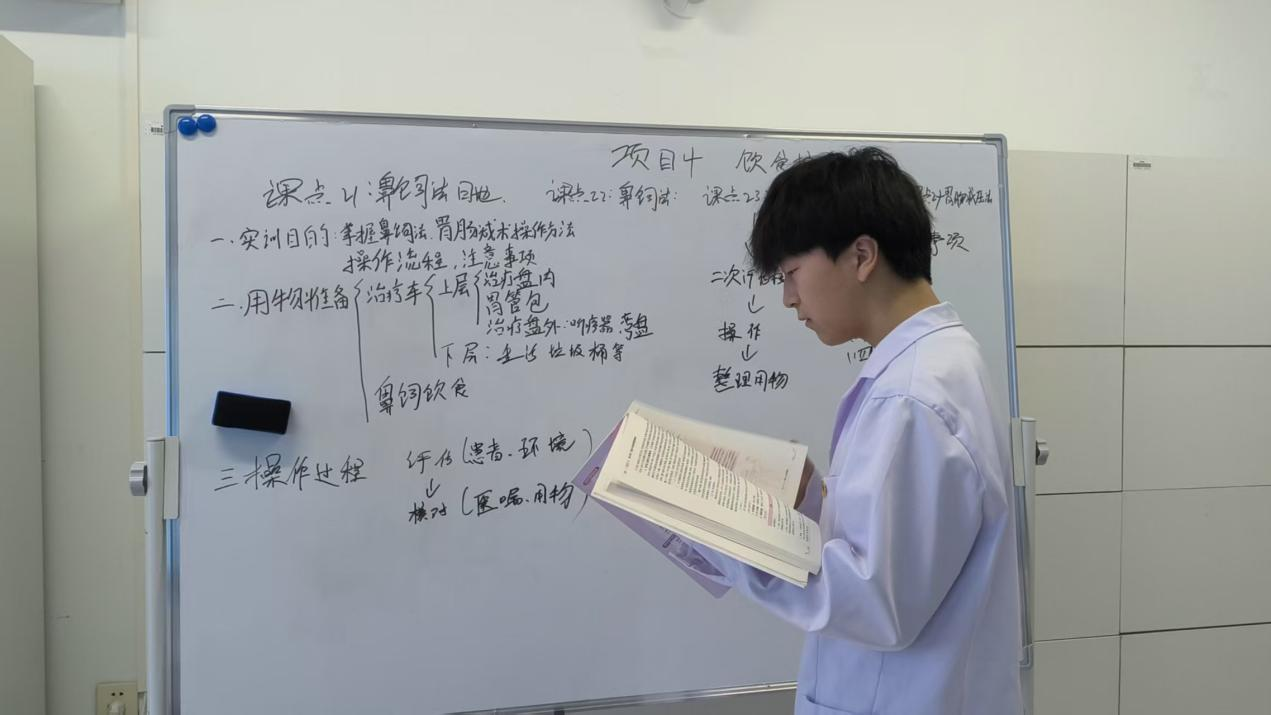 项目4 饮食
课点21:鼻饲法目地. 课点22:鼻饲法: 课点23 胃肠减压法
一.实训目的:掌握鼻饲法.胃肠减术操作方法
操作流程,注意事项
二.用物准备 治疗车 上层 治疗盘内
胃管包
治疗盘外:听疗器.弯盘
下层: 垃圾桶等
鼻饲饮食
三操作过程 评估(患者.环境)
↓
核对(医嘱.用物)
二次评估
↓
操作
↓
整理用物
事项